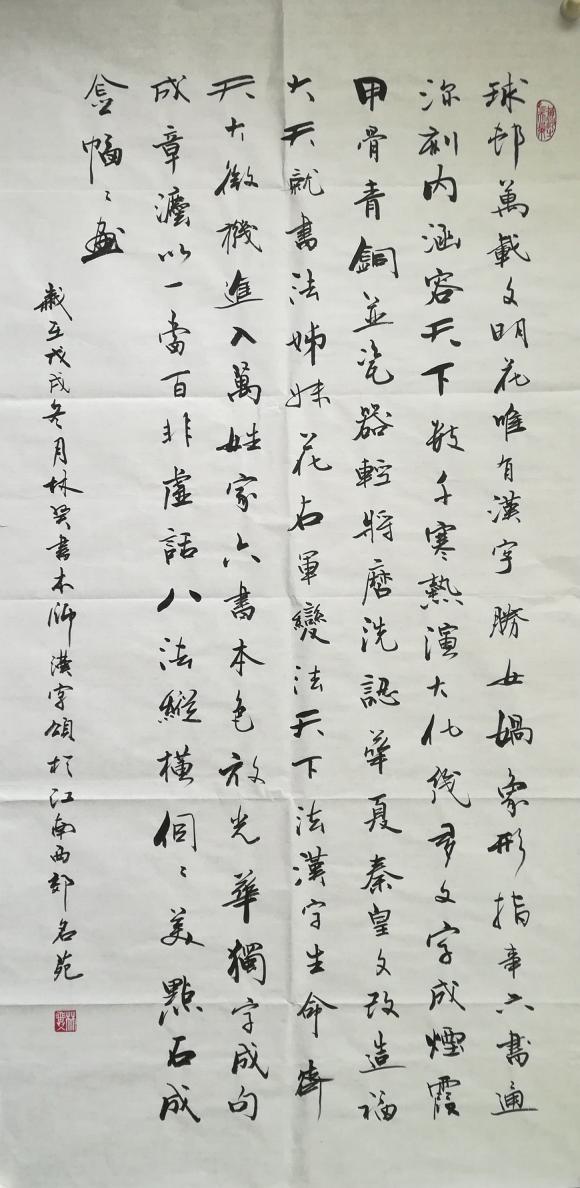 球邨萬載文明花唯有漢字勝女媧象形指事六書通
深刻內涵容天下數千寒熱演大化幾多文字成煙霞
甲骨青銅並瓷器輕將磨洗認華夏秦皇文改造福
大天就書法姊妹花右軍變法天下法漢字生命
天大微機進入萬姓家六書本色放光華獨字成句
成章濃以一當百非虛話八法縱橫個々美點石成
金幅々畫
歲在戊戌冬月林癸書木師漢字頌於江南西郡名苑